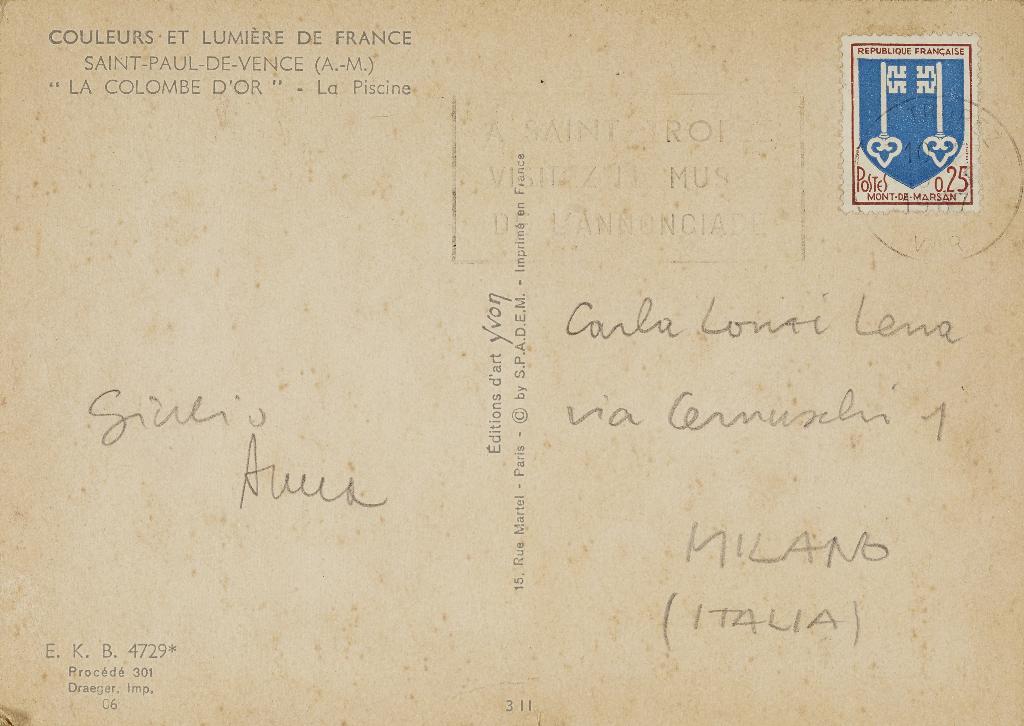 COULEURS ET LUMIÈRE DE FRANCE
SAINT-PAUL-DE-VENCE (A.-M.)
“ LA COLOMBE D'OR ” - La Piscine
A SAINT TROPEZ
VISITEZ LE MUSÉE
DE L'ANNONCIADE
REPUBLIQUE FRANÇAISE
POSTES 0.25
MONT-DE-MARSAN
VAR
Éditions d'art yvon
15, Rue Martel - Paris - © by S.P.A.D.E.M. - Imprimé en France
Carla Lonzi Lena
via Cernuschi 1
MILANO
(ITALIA)
Giulio
Anna
E. K. B. 4729*
Procédé 301
Draeger, Imp.
06
3 11